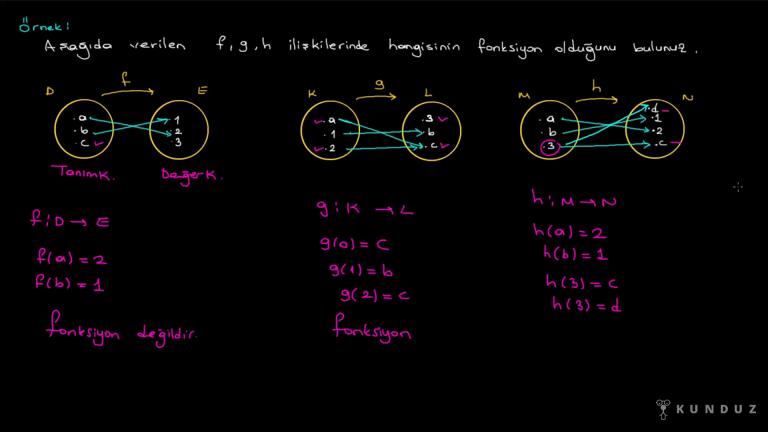 Örnek:
Aşağıda verilen f, g, h ilişkilerinde hangisinin fonksiyon olduğunu bulunuz.
D f E
.a
.b
.c
.1
.2
.3
Tanım K. Değer K.
f: D → E
f(a) = 2
f(b) = 1
fonksiyon değildir.
K g L
.a
.1
.2
.3
.b
.c
g: K → L
g(a) = c
g(1) = b
g(2) = c
fonksiyon
M h N
.a
.b
.3
.d
.1
.2
.c
h: M → N
h(a) = 2
h(b) = 1
h(3) = c
h(3) = d
KUNDUZ